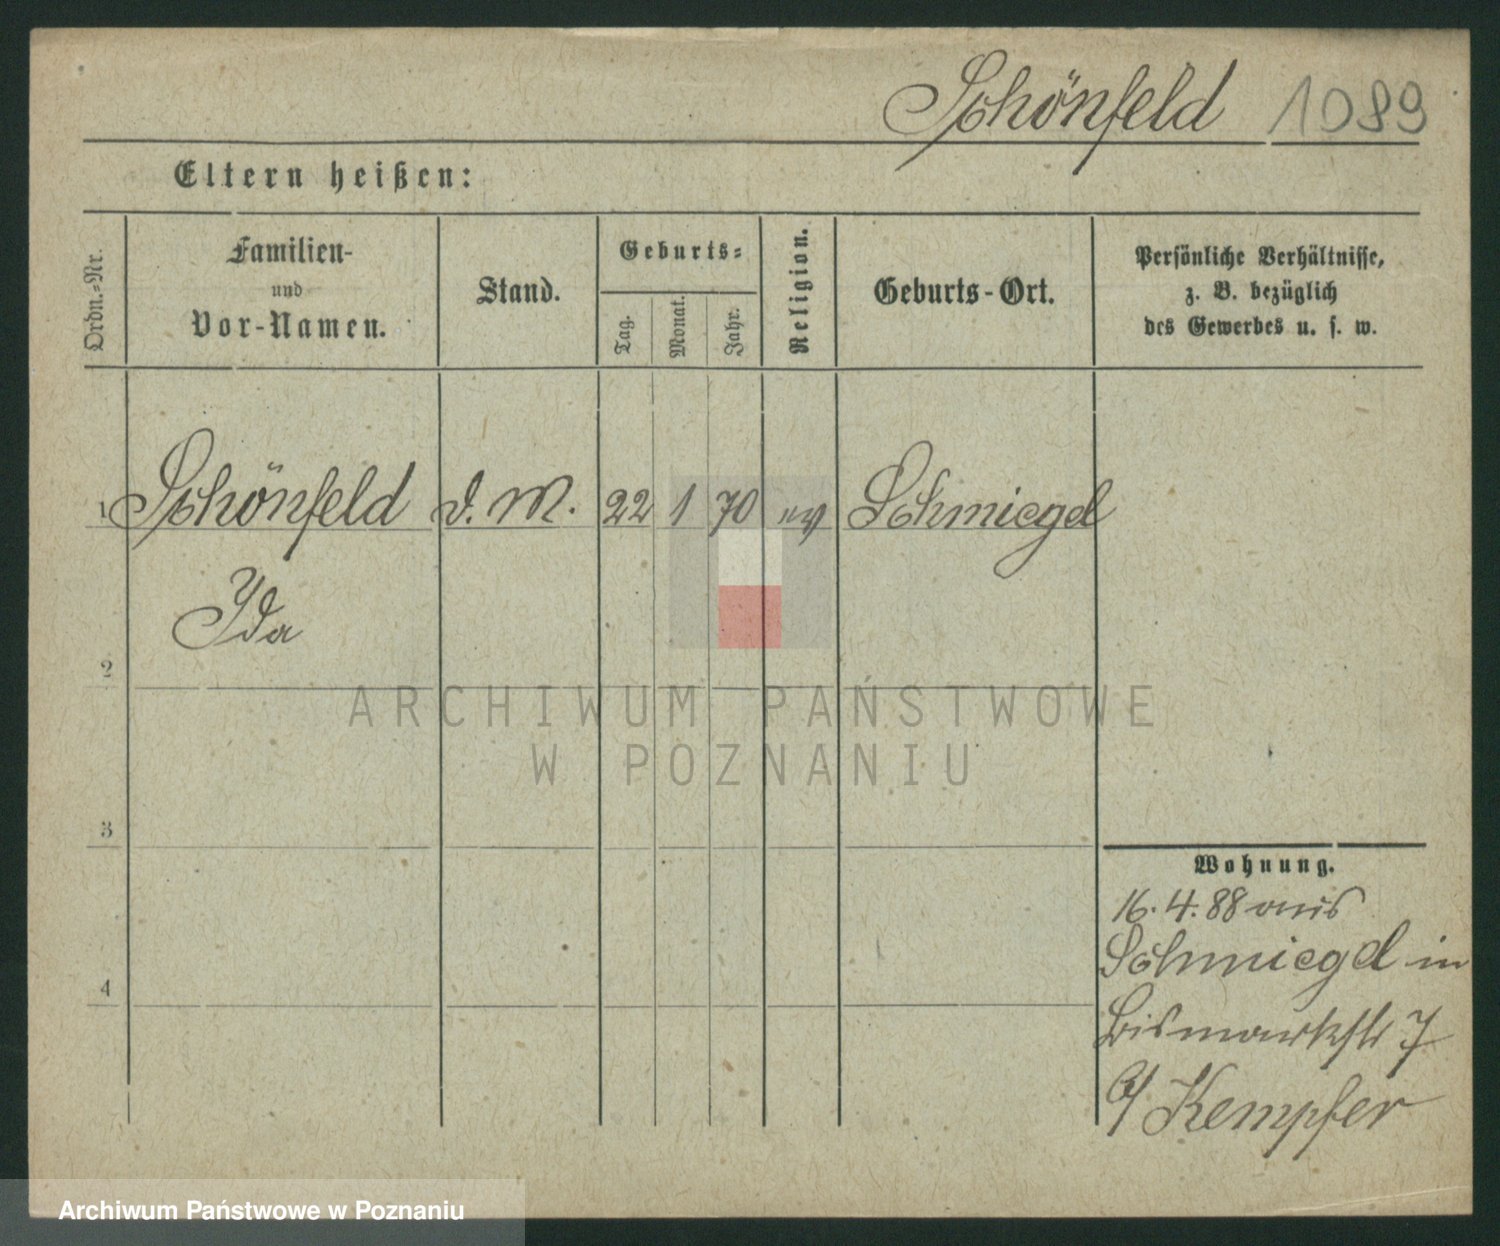 Schönfeld 1089
Eltern heißen:
Ordn.-Nr.
Familien-
und
Vor-Namen.
Stand.
Geburts-
Tag.
Monat.
Jahr.
Religion.
Geburts-Ort.
Persönliche Verhältnisse,
z. B. bezüglich
des Gewerbes u. s. w.
1 Schönfeld d. M. 22 1 70 ev Schmiegel
Ida
2
ARCHIWUM PAŃSTWOWE
W POZNANIU
3
Wohnung.
16. 4. 88 aus
Schmiegel in
4
Bismarkstr 7
b/ Kempfer
Archiwum Państwowe w Poznaniu